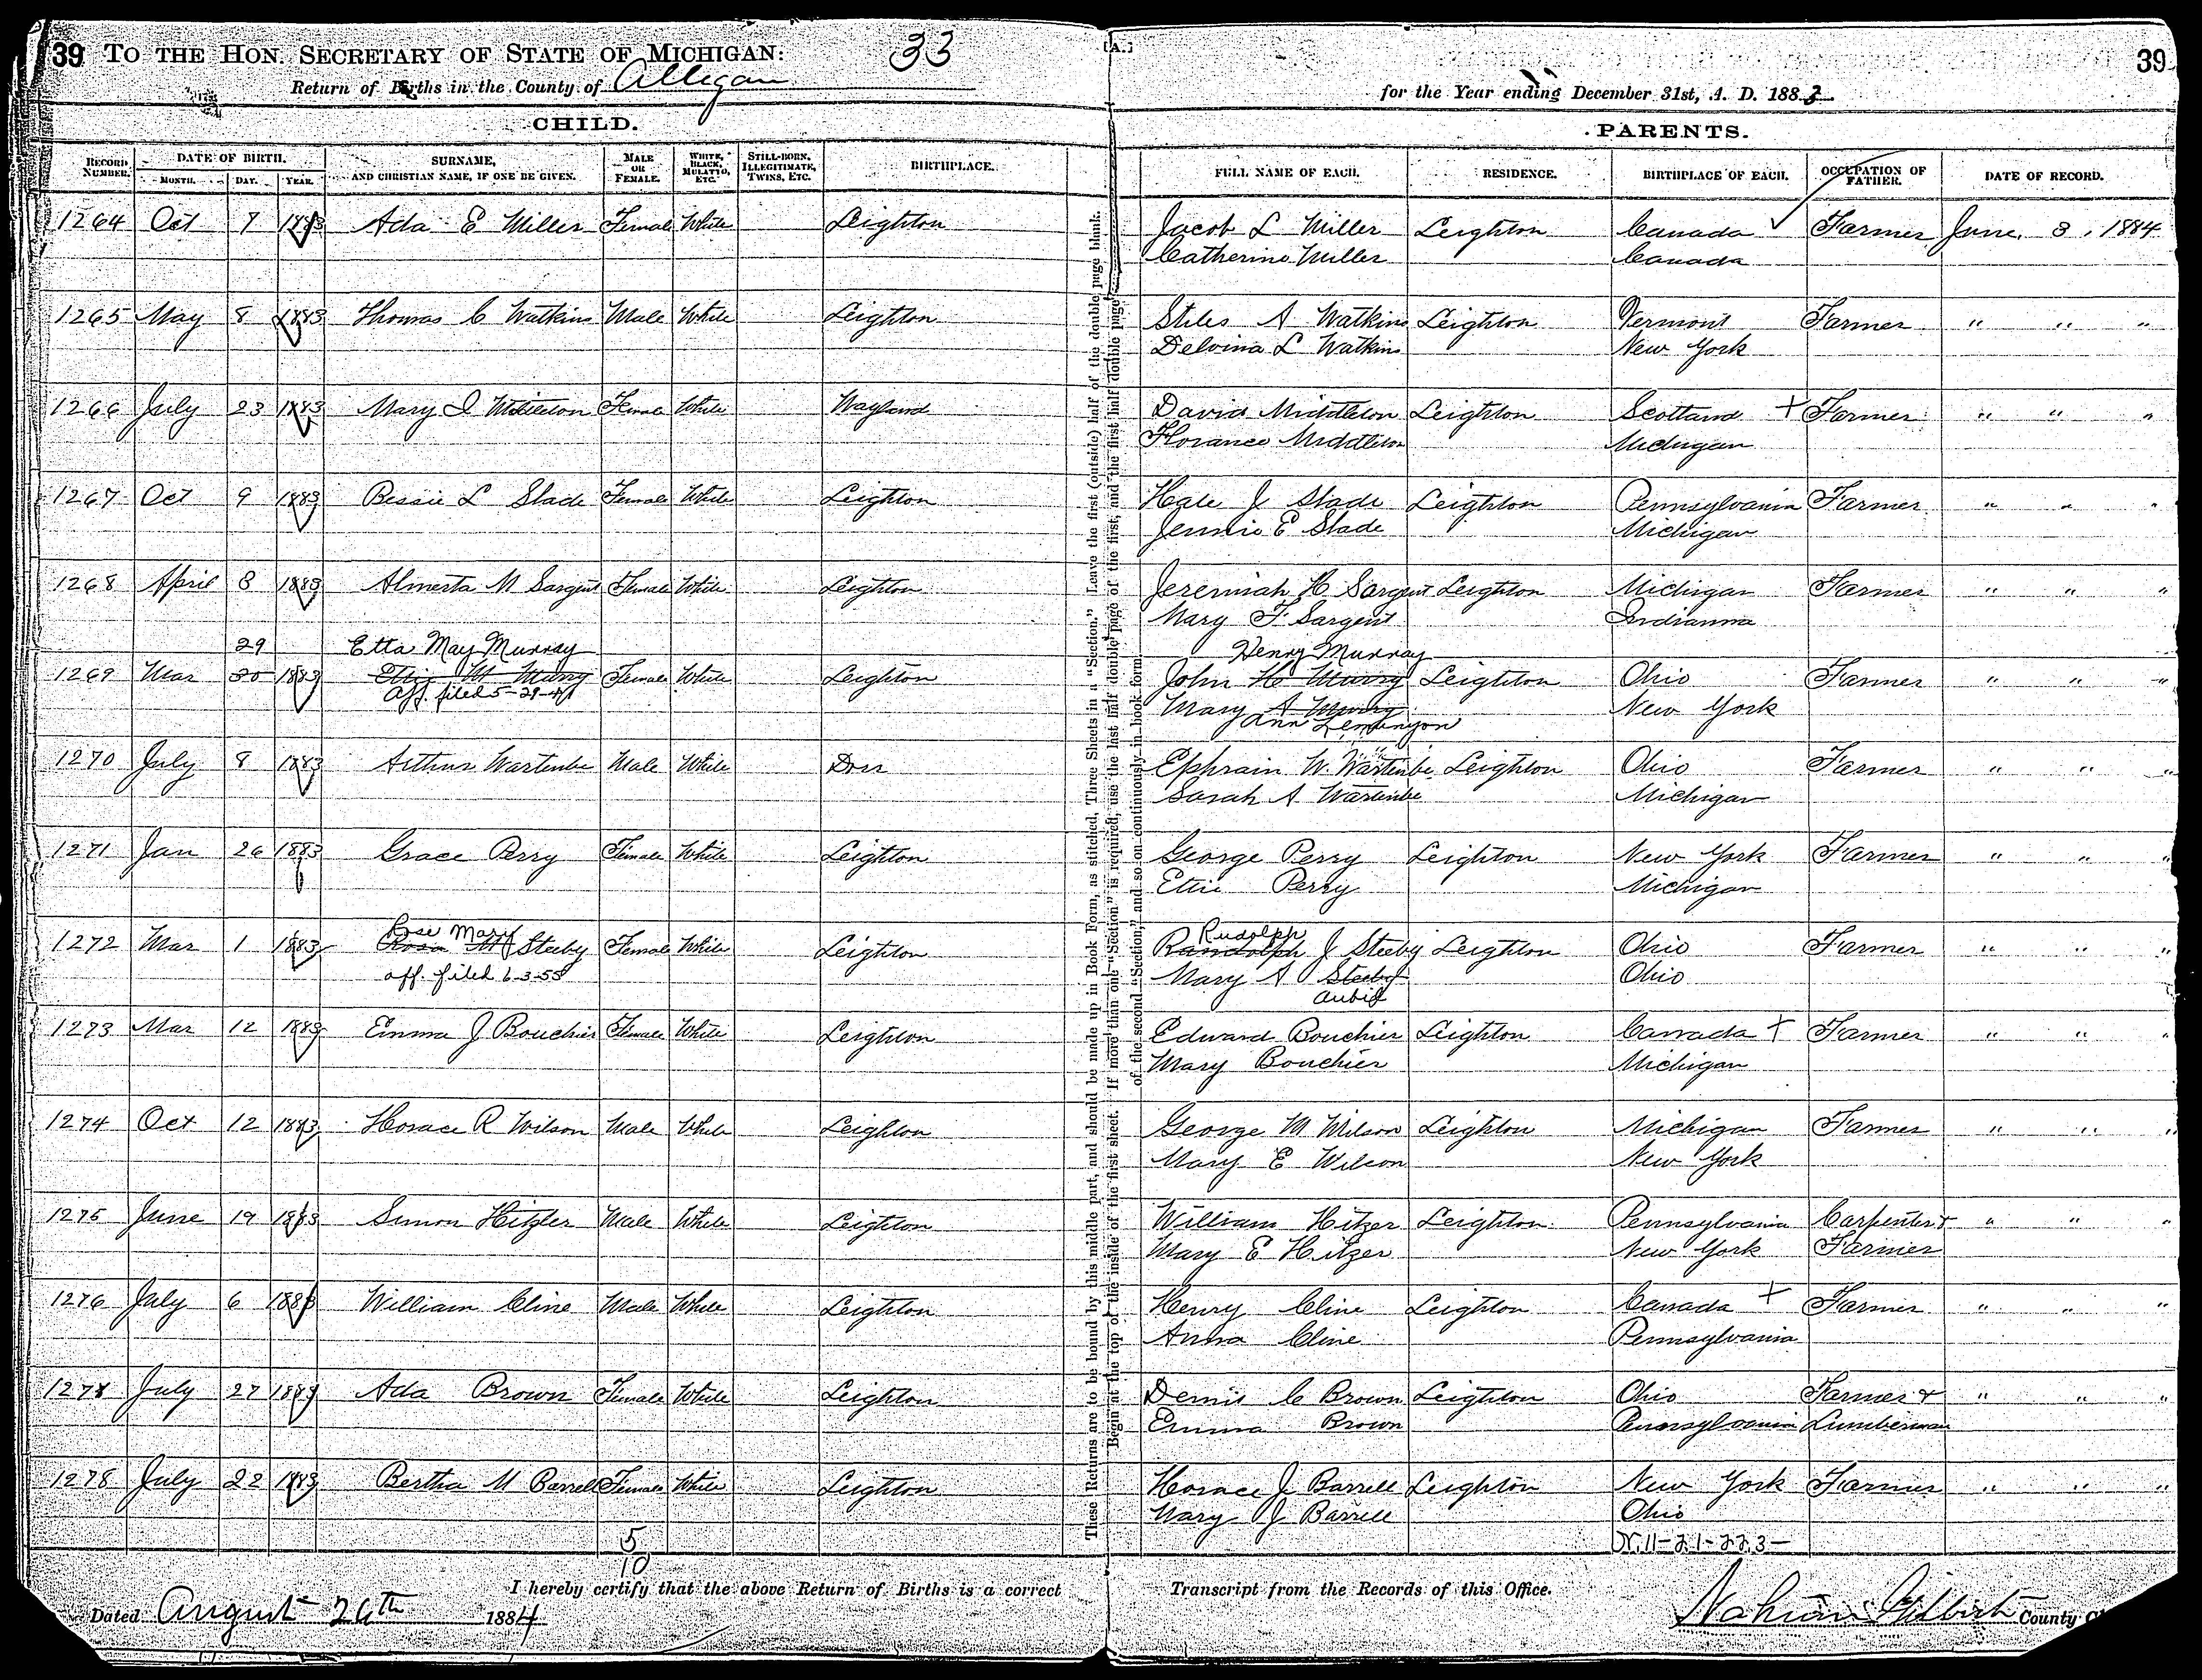 39 TO THE HON. SECRETARY OF STATE OF MICHIGAN: 33
Return of Births in the County of Allegan
[A.] 39
for the Year ending December 31st, A. D. 1883
CHILD. PARENTS.
RECORD NUMBER. DATE OF BIRTH. MONTH. DAY. YEAR. SURNAME, AND CHRISTIAN NAME, IF ONE BE GIVEN. MALE OR FEMALE. WHITE, BLACK, MULATTO, ETC. STILL-BORN, ILLEGITIMATE, TWINS, ETC. BIRTHPLACE. FULL NAME OF EACH. RESIDENCE. BIRTHPLACE OF EACH. OCCUPATION OF FATHER. DATE OF RECORD.
1264 Oct 7 1883 Ada E Miller Female White Leighton Jacob L Miller Leighton Canada Farmer June 3, 1884
Catherine Miller Canada
1265 May 8 1883 Thomas C Watkins Male White Leighton Stiles A Watkins Leighton Vermont Farmer " " "
Delvina L Watkins New York
1266 July 23 1883 Mary I Middleton Female White Wayland David Middleton Leighton Scotland + Farmer " " "
Florance Middleton Michigan
1267 Oct 9 1883 Bessie L Slade Female White Leighton Hale J Slade Leighton Pennsylvania Farmer " " "
Jennie E Slade Michigan
1268 April 8 1883 Almerta M Sargent Female White Leighton Jeremiah H Sargent Leighton Michigan Farmer " " "
Mary F Sargent Indianna
29 Etta May Murray Henry Murray
1269 Mar 30 1883 Etta M Murry Female White Leighton John H Murry Leighton Ohio Farmer " " "
Aff. filed 5-29-41 Mary A Murry New York
Ann Lemunyon
1270 July 8 1883 Arthur Wartenbe Male White Dorr Ephrain W. Wartenbe Leighton Ohio Farmer " " "
Sarah A Wartenbe Michigan
1271 Jan 26 1883 Grace Perry Female White Leighton George Perry Leighton New York Farmer " " "
Ettie Perry Michigan
Rose Mary Rudolph
1272 Mar 1 1883 Rosa M Steeby Female White Leighton Randolph J Steeby Leighton Ohio Farmer " " "
aff. filed 6-3-55 Mary A Steeby Ohio
Aubil
1273 Mar 12 1883 Emma J Bouchier Female White Leighton Edward Bouchier Leighton Canada + Farmer " " "
Mary Bouchier Michigan
1274 Oct 12 1883 Horace R Wilson Male White Leighton George M Wilson Leighton Michigan Farmer " " "
Mary E Wilson New York
1275 June 19 1883 Simon Hitzler Male White Leighton William Hitzer Leighton Pennsylvania Carpenter + " " "
Mary E Hitzer New York Farmer
1276 July 6 1883 William Cline Male White Leighton Henry Cline Leighton Canada + Farmer " " "
Anna Cline Pennsylvania
1277 July 27 1883 Ada Brown Female White Leighton Dennis C Brown Leighton Ohio Farmer + " " "
Emma Brown Pennsylvania Lumberman
1278 July 22 1883 Bertha M Barrell Female White Leighton Horace J Barrell Leighton New York Farmer " " "
Mary J Barrell Ohio
5 N.11-21-22.3-
10
I hereby certify that the above Return of Births is a correct Transcript from the Records of this Office.
Dated August 26th 1884 County
These Returns are to be bound by this middle part, and should be made up in Book Form, as stitched, Three Sheets in a "Section." Leave the first (outside) half of the double page blank.
Begin at the top of the inside of the first sheet. If more than one "Section" is required, use the last half double page of the first, and the first half double page
of the second "Section," and so on continuously, in book form.